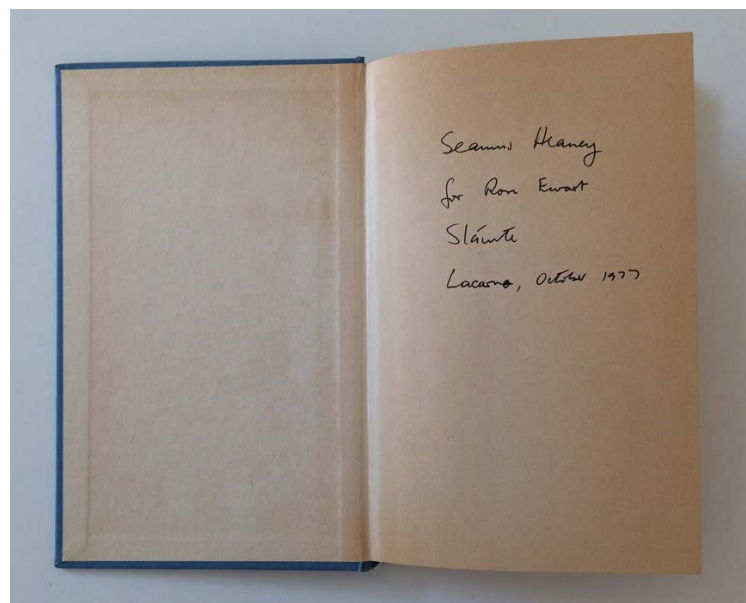 Seamus Heaney
for Ron Ewart
Sláinte
Lacarno, October 1977